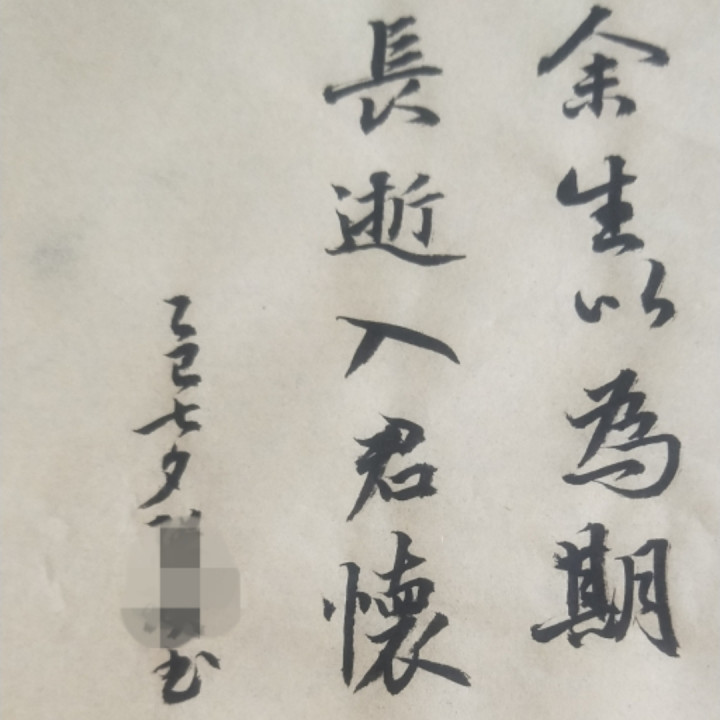 余生以為期
長逝入君懷
乙巳七夕